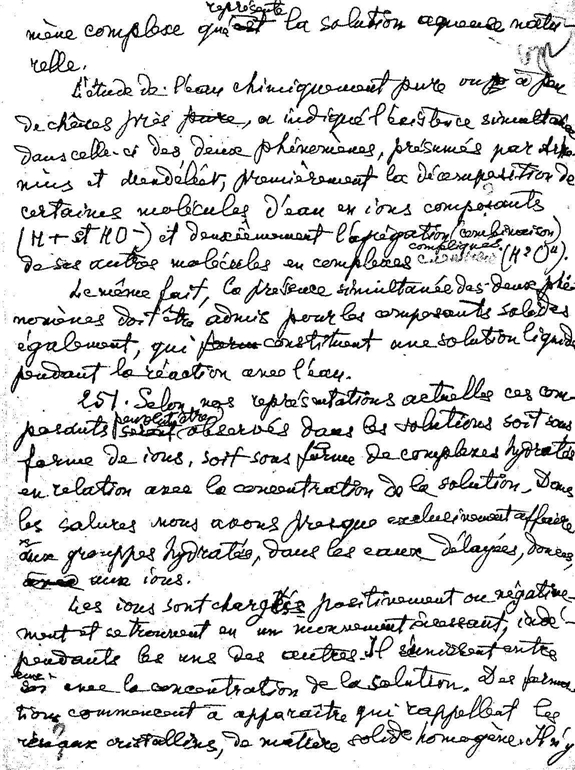 représente
mène complexe qu'est la solution aqueuse natu-
relle.
L'étude de l'eau chimiquement pure ou à peu
de chôses près pure, a indiqué l'éxistence simultanée
dans celle-ci des deux phénomènes, présumés par Arrhe-
nius et Mendéléev, premièrement la décomposition de
certaines molécules d'eau en ions composants
(H+ et HO-) et deuxièmement l'agrégation (combinaison)
compliqués
de ses autres molécules en complexes (H²O)ⁿ.
Le même fait, la présence simultanée des deux phé-
nomènes doit être admis pour les composants solides
également, qui form constituent une solution liquide
pendant la réaction avec l'eau.
25/. Selon nos représentations actuelles ces com-
peuvent être
posants seront observés dans les solutions soit sous
forme de ions, soit sous forme de complexes hydratés
en relation avec la concentration de la solution. Dans
les salures nous avons presque exclusivement affaire
aux grouppes hydratés, dans les eaux délayées, douces,
avec aux ions.
Les ions sont chargés positivement ou négative-
ment et se trouvent en un mouvement incessant, indé-
pendants les uns des autres. Il s'unissent entre
eux
avec la concentration de la solution. Des forma-
tions commencent à apparaître qui rappellent les
réseaux cristallins, de matière solide homogène. Il n'y